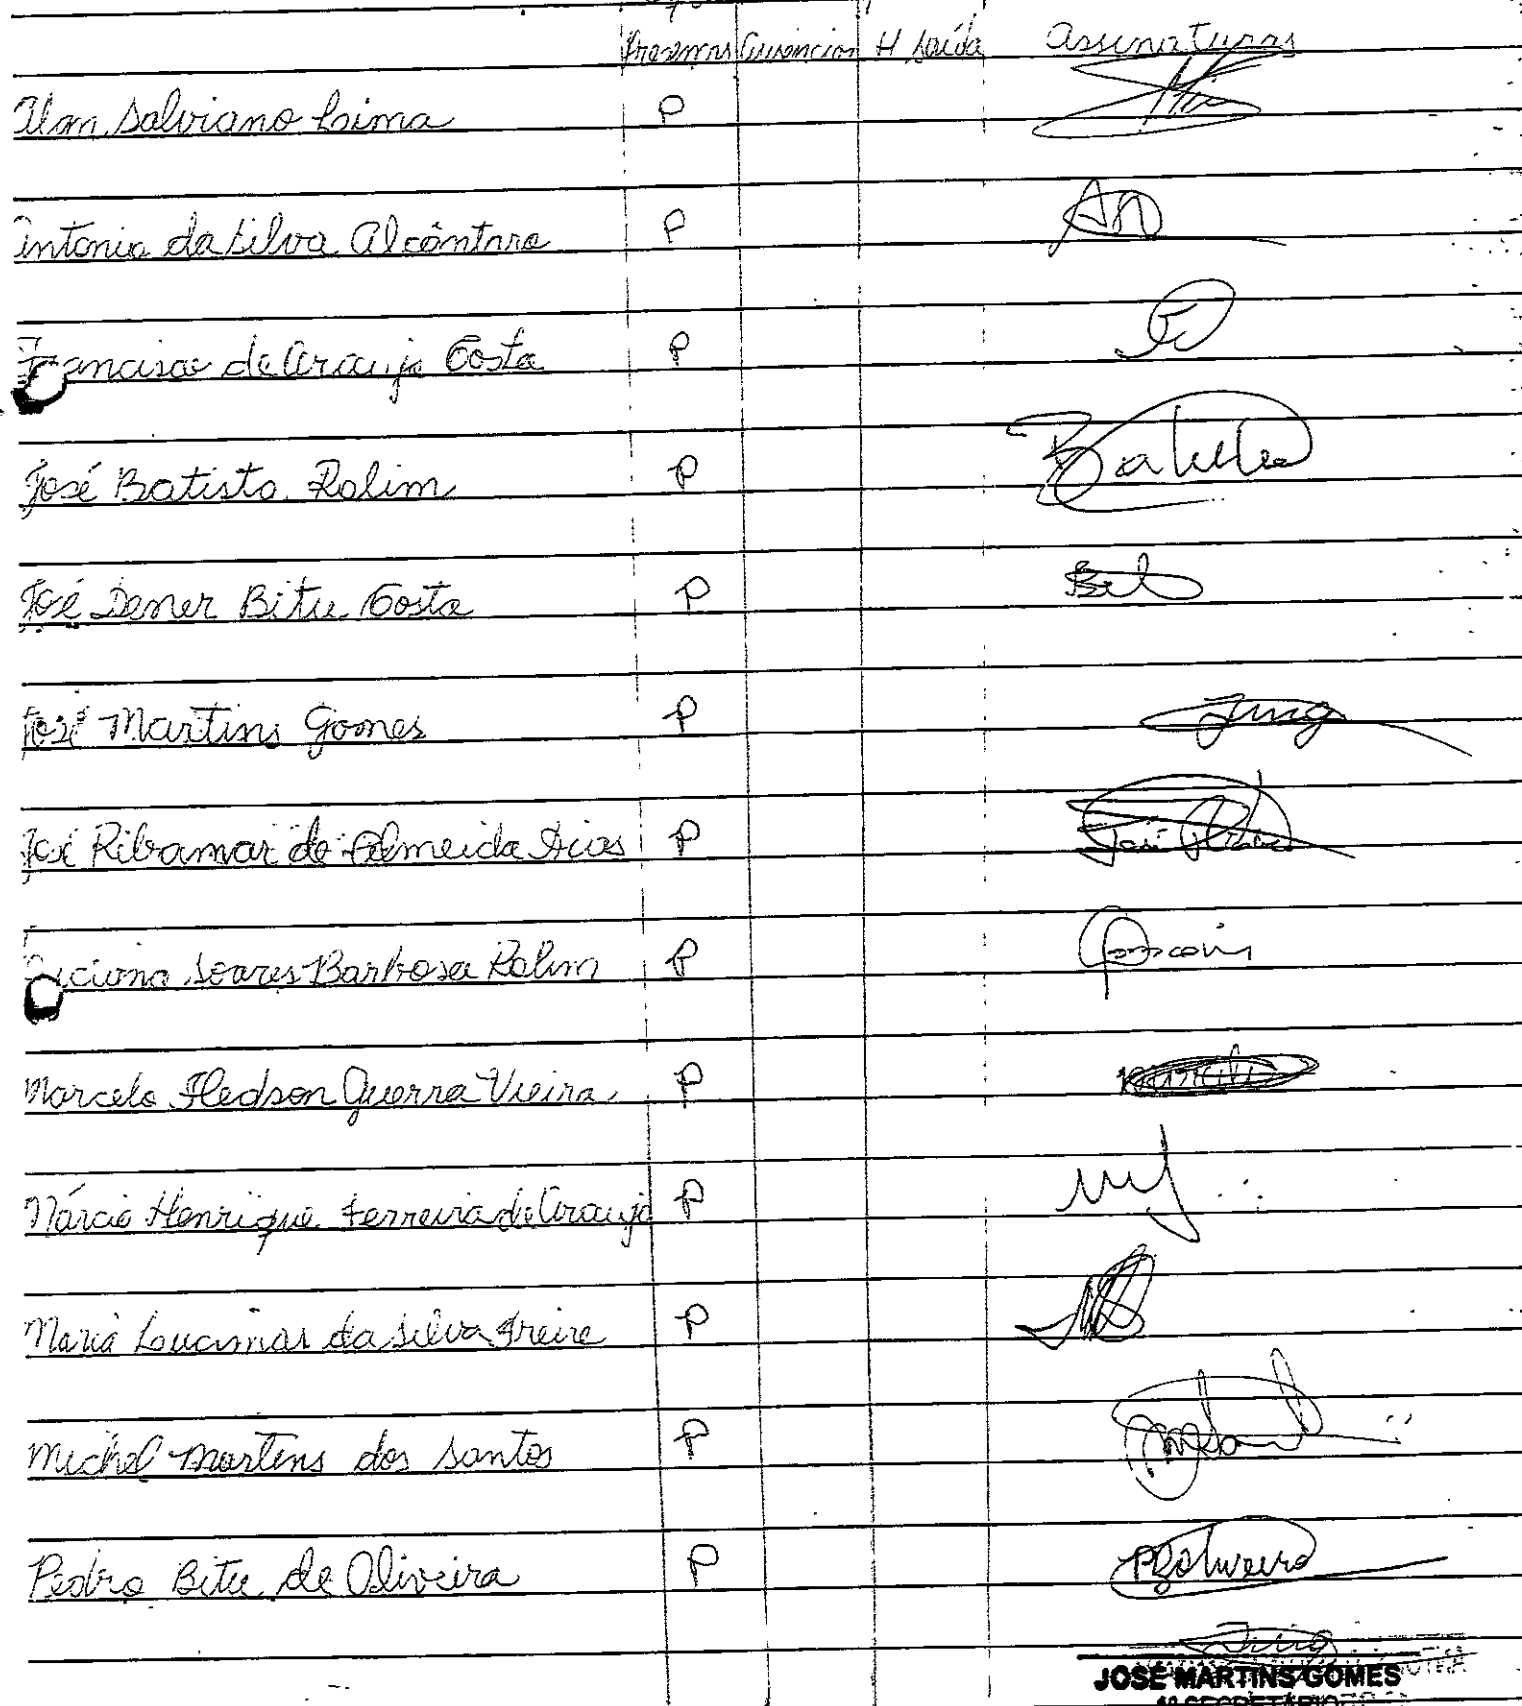 Presenças Ausências H Saída Assinaturas
Alan Salviano Lima P
Antonia da Silva Alcântara P
Francisco de Araujo Costa P
José Batista Rolim P Batista
José Demer Bitu Costa P
José Martins Gomes P Jmg
José Ribamar de Almeida Dias P José
Luciana Soares Barbosa Rolim P
Marcelo Fledson Guerra Vieira P
Márcio Henrique Ferreira de Araujo P
Maria Lucimar da Silva Freire P
Michel Martins dos Santos P
Pedro Bitu de Oliveira P PBOliveira
Jmg
JOSÉ MARTINS GOMES
1º SECRETÁRIO